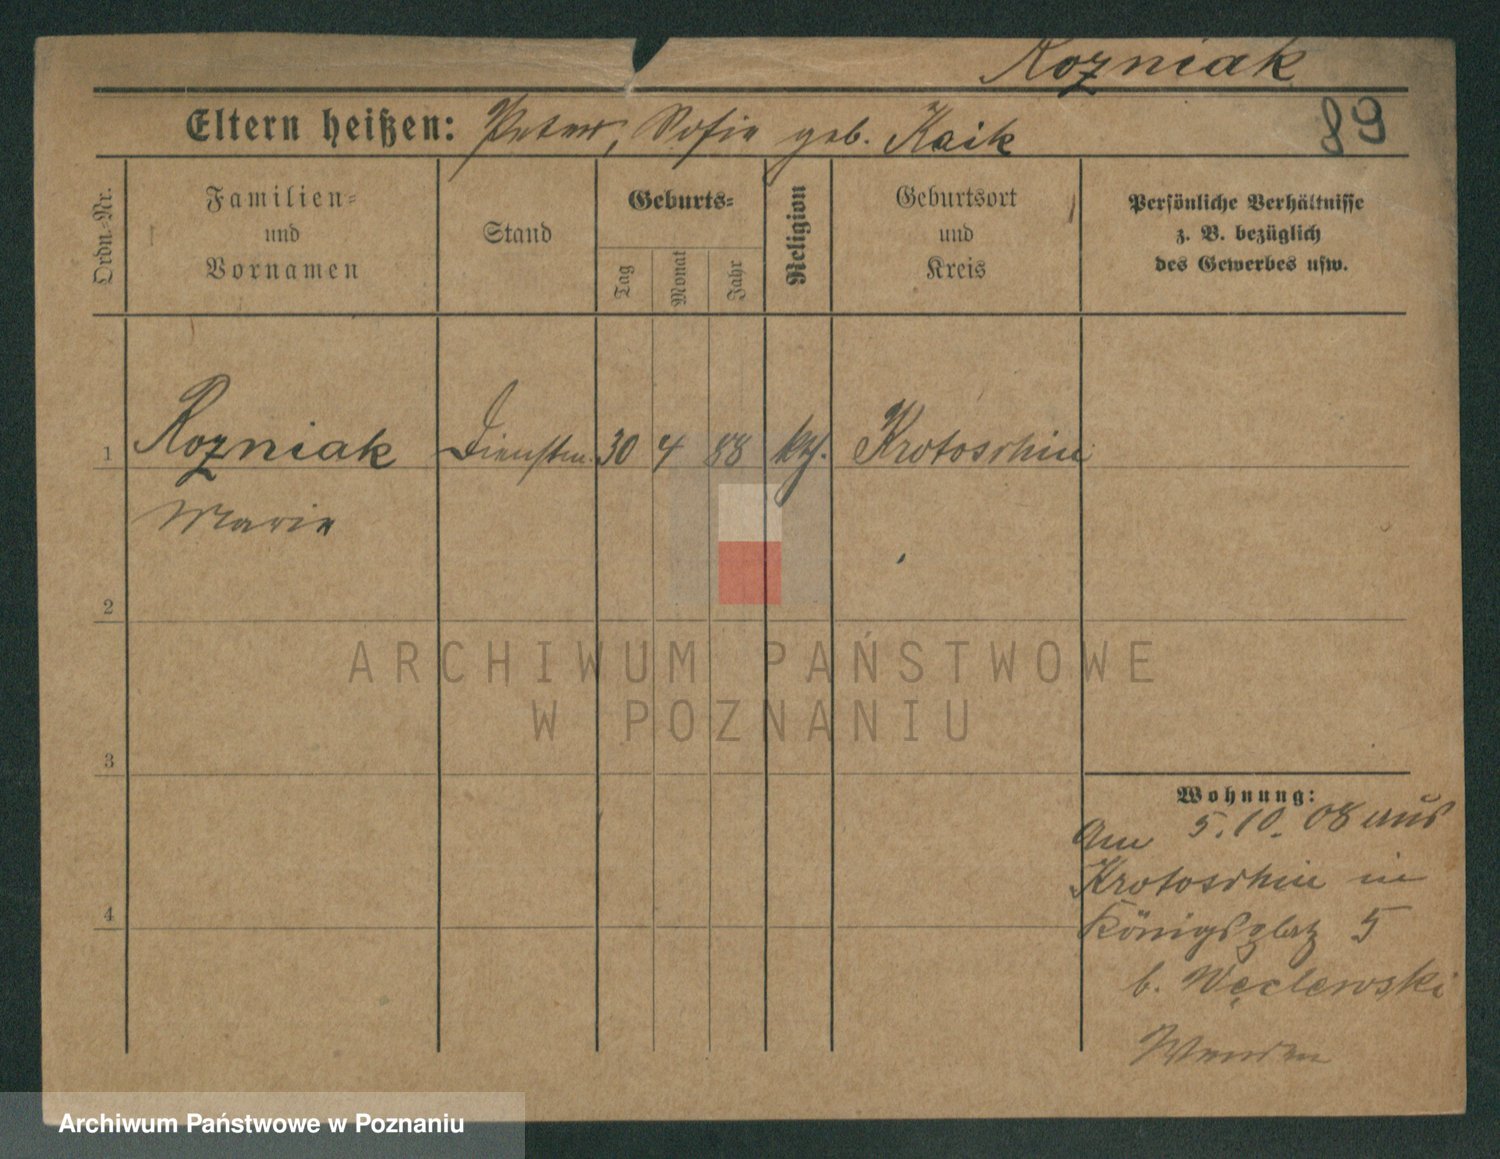 Rozniak
Eltern heißen: Peter, Sofie geb. Kaik
89
Ordn.-Nr.
Familien-
und
Vornamen
Stand
Geburts-
Tag
Monat
Jahr
Religion
Geburtsort
und
Kreis
Persönliche Verhältnisse
z. B. bezüglich
des Gewerbes usw.
1 Rozniak Dienstm. 30 4 88 kth. Krotoschin
Marie
2
3
4
Wohnung:
Am 5.10.08 aus
Krotoschin in
Königsplatz 5
b. Węclewski
ARCHIWUM PAŃSTWOWE
W POZNANIU
Archiwum Państwowe w Poznaniu